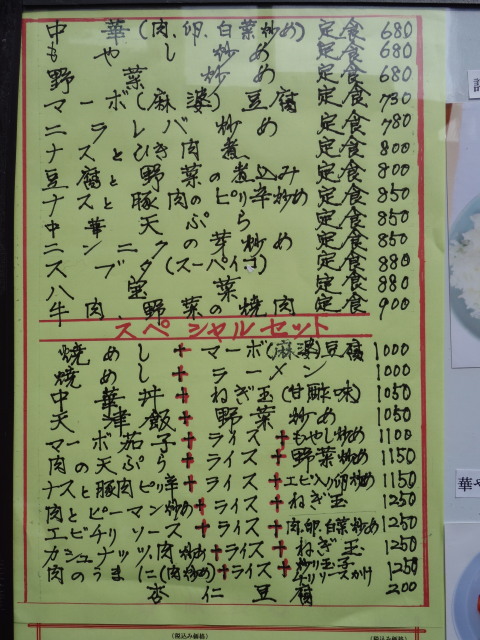 中華(肉.卵.白菜炒め)定食 680
もやし炒め定食 680
野菜炒め定食 680
マーボ(麻婆)豆腐定食 730
ニラレバ炒め定食 780
ナスとひき肉煮定食 800
豆腐と野菜の煮込み定食 800
ナスと豚肉のピリ辛炒め定食 850
中華天ぷら定食 850
ニンニクの芽炒め定食 850
スブタ(スーパイコ)定食 880
八宝菜定食 880
牛肉.野菜の焼肉定食 900
スペシャルセット
焼めし+マーボ(麻婆)豆腐 1000
焼めし+ラーメン 1000
中華丼+ねぎ玉(甘酢味) 1050
天津飯+野菜炒め 1050
マーボ茄子+ライス+もやし炒め 1100
肉の天ぷら+ライス+野菜炒め 1150
ナスと豚肉ピリ辛+ライス+エビ入り卵炒め 1150
肉とピーマン炒め+ライス+ねぎ玉 1250
エビチリソース+ライス+肉.卵.白菜炒め 1250
カシュナッツ.肉炒め+ライス+ねぎ玉 1250
肉のうま に(肉炒め)+ライス+炒り玉子チリソースかけ 1250
杏仁豆腐 200
(税込み価格)
(税込み価格)
華や